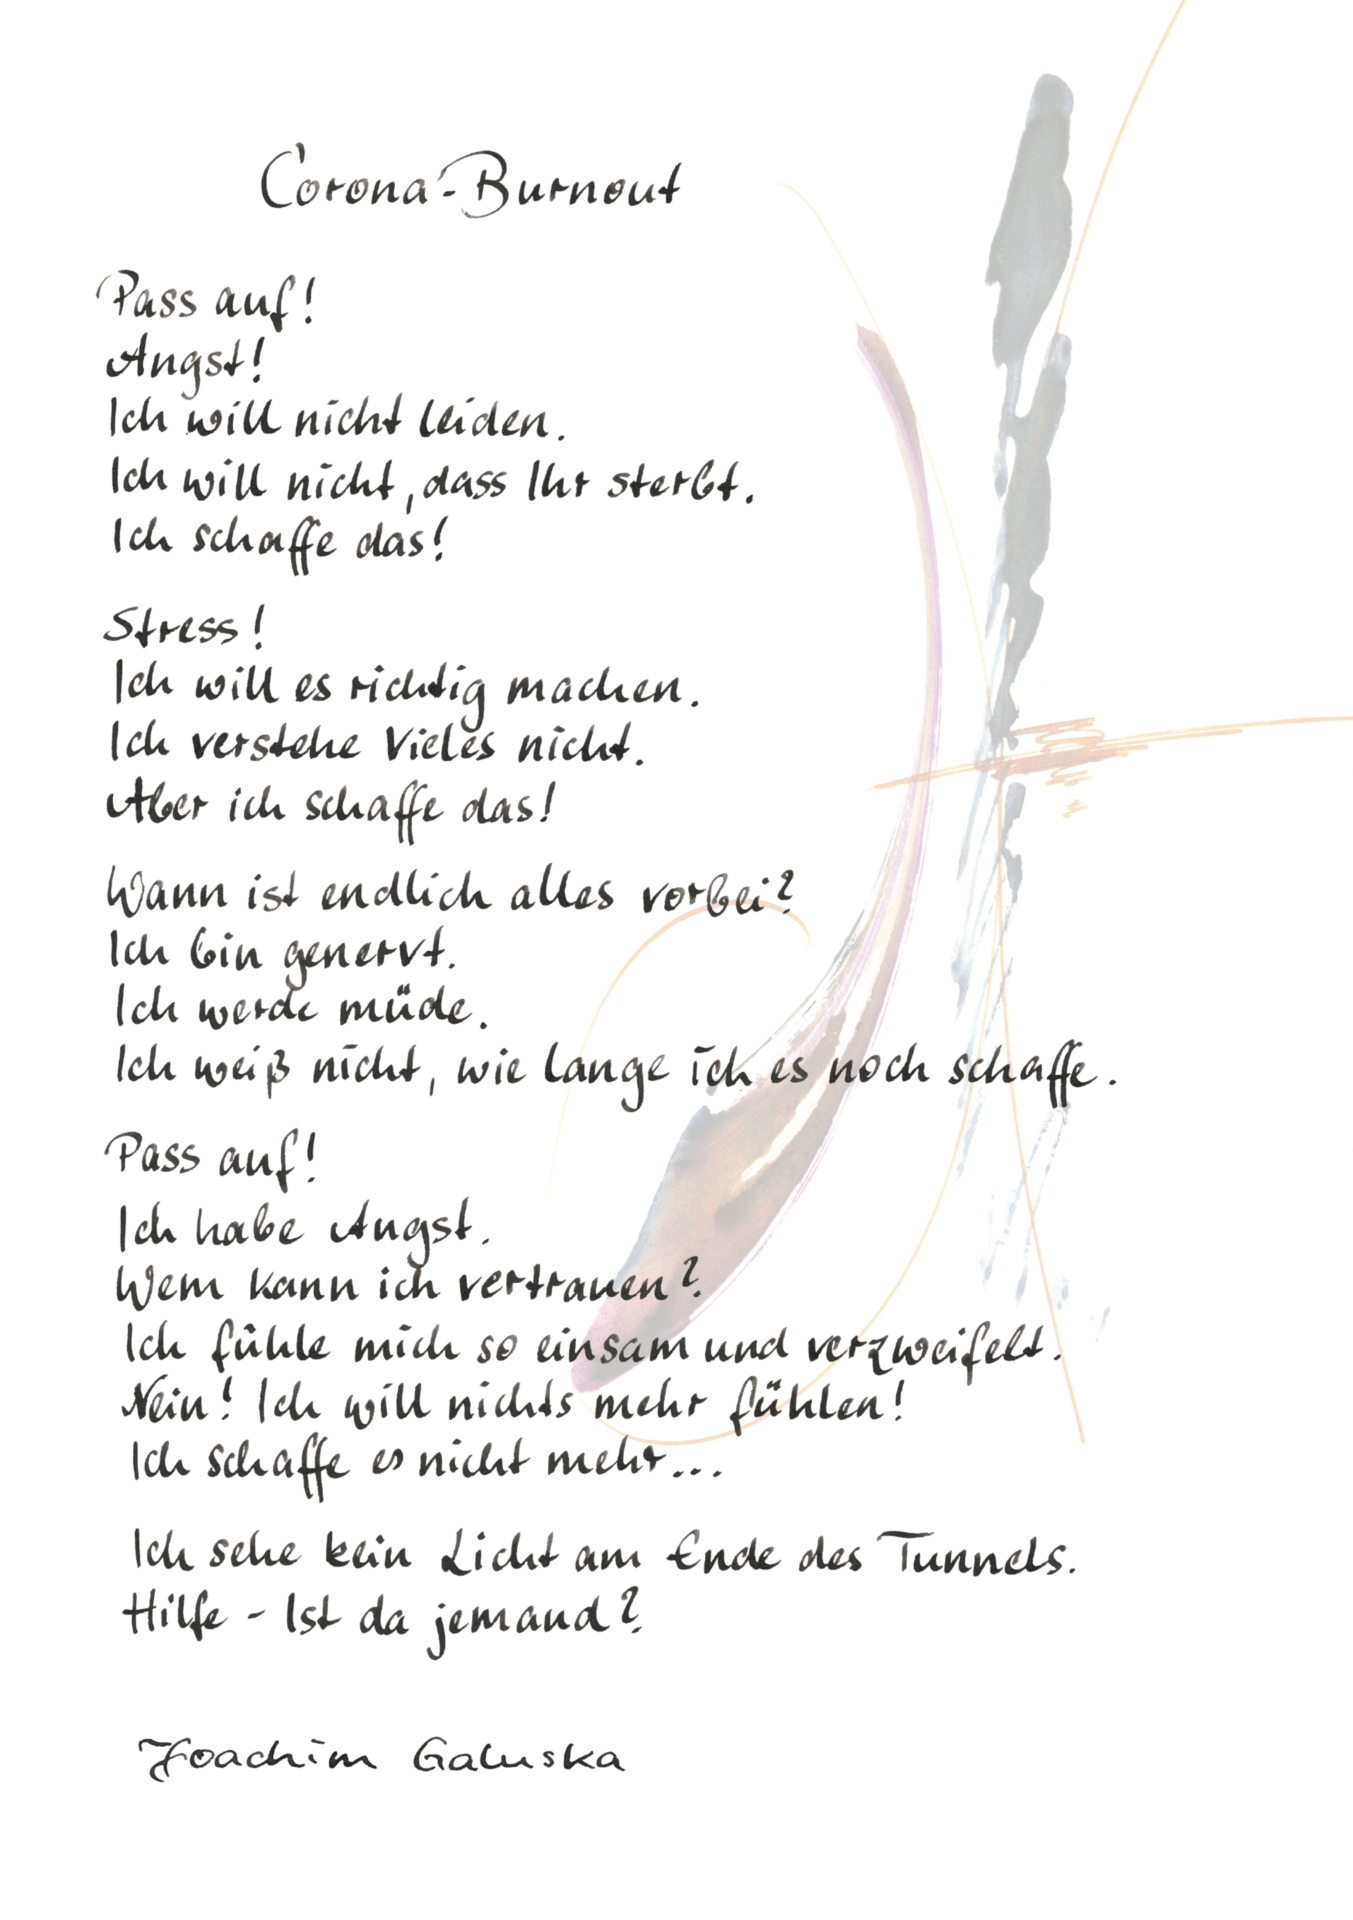 Corona-Burnout
Pass auf!
Angst!
Ich will nicht leiden.
Ich will nicht, dass Ihr sterbt.
Ich schaffe das!
Stress!
Ich will es richtig machen.
Ich verstehe Vieles nicht.
Aber ich schaffe das!
Wann ist endlich alles vorbei?
Ich bin genervt.
Ich werde müde.
Ich weiß nicht, wie lange ich es noch schaffe.
Pass auf!
Ich habe Angst.
Wem kann ich vertrauen?
Ich fühle mich so einsam und verzweifelt.
Nein! Ich will nichts mehr fühlen!
Ich schaffe es nicht mehr...
Ich sehe kein Licht am Ende des Tunnels.
Hilfe - Ist da jemand?
Joachim Galuska